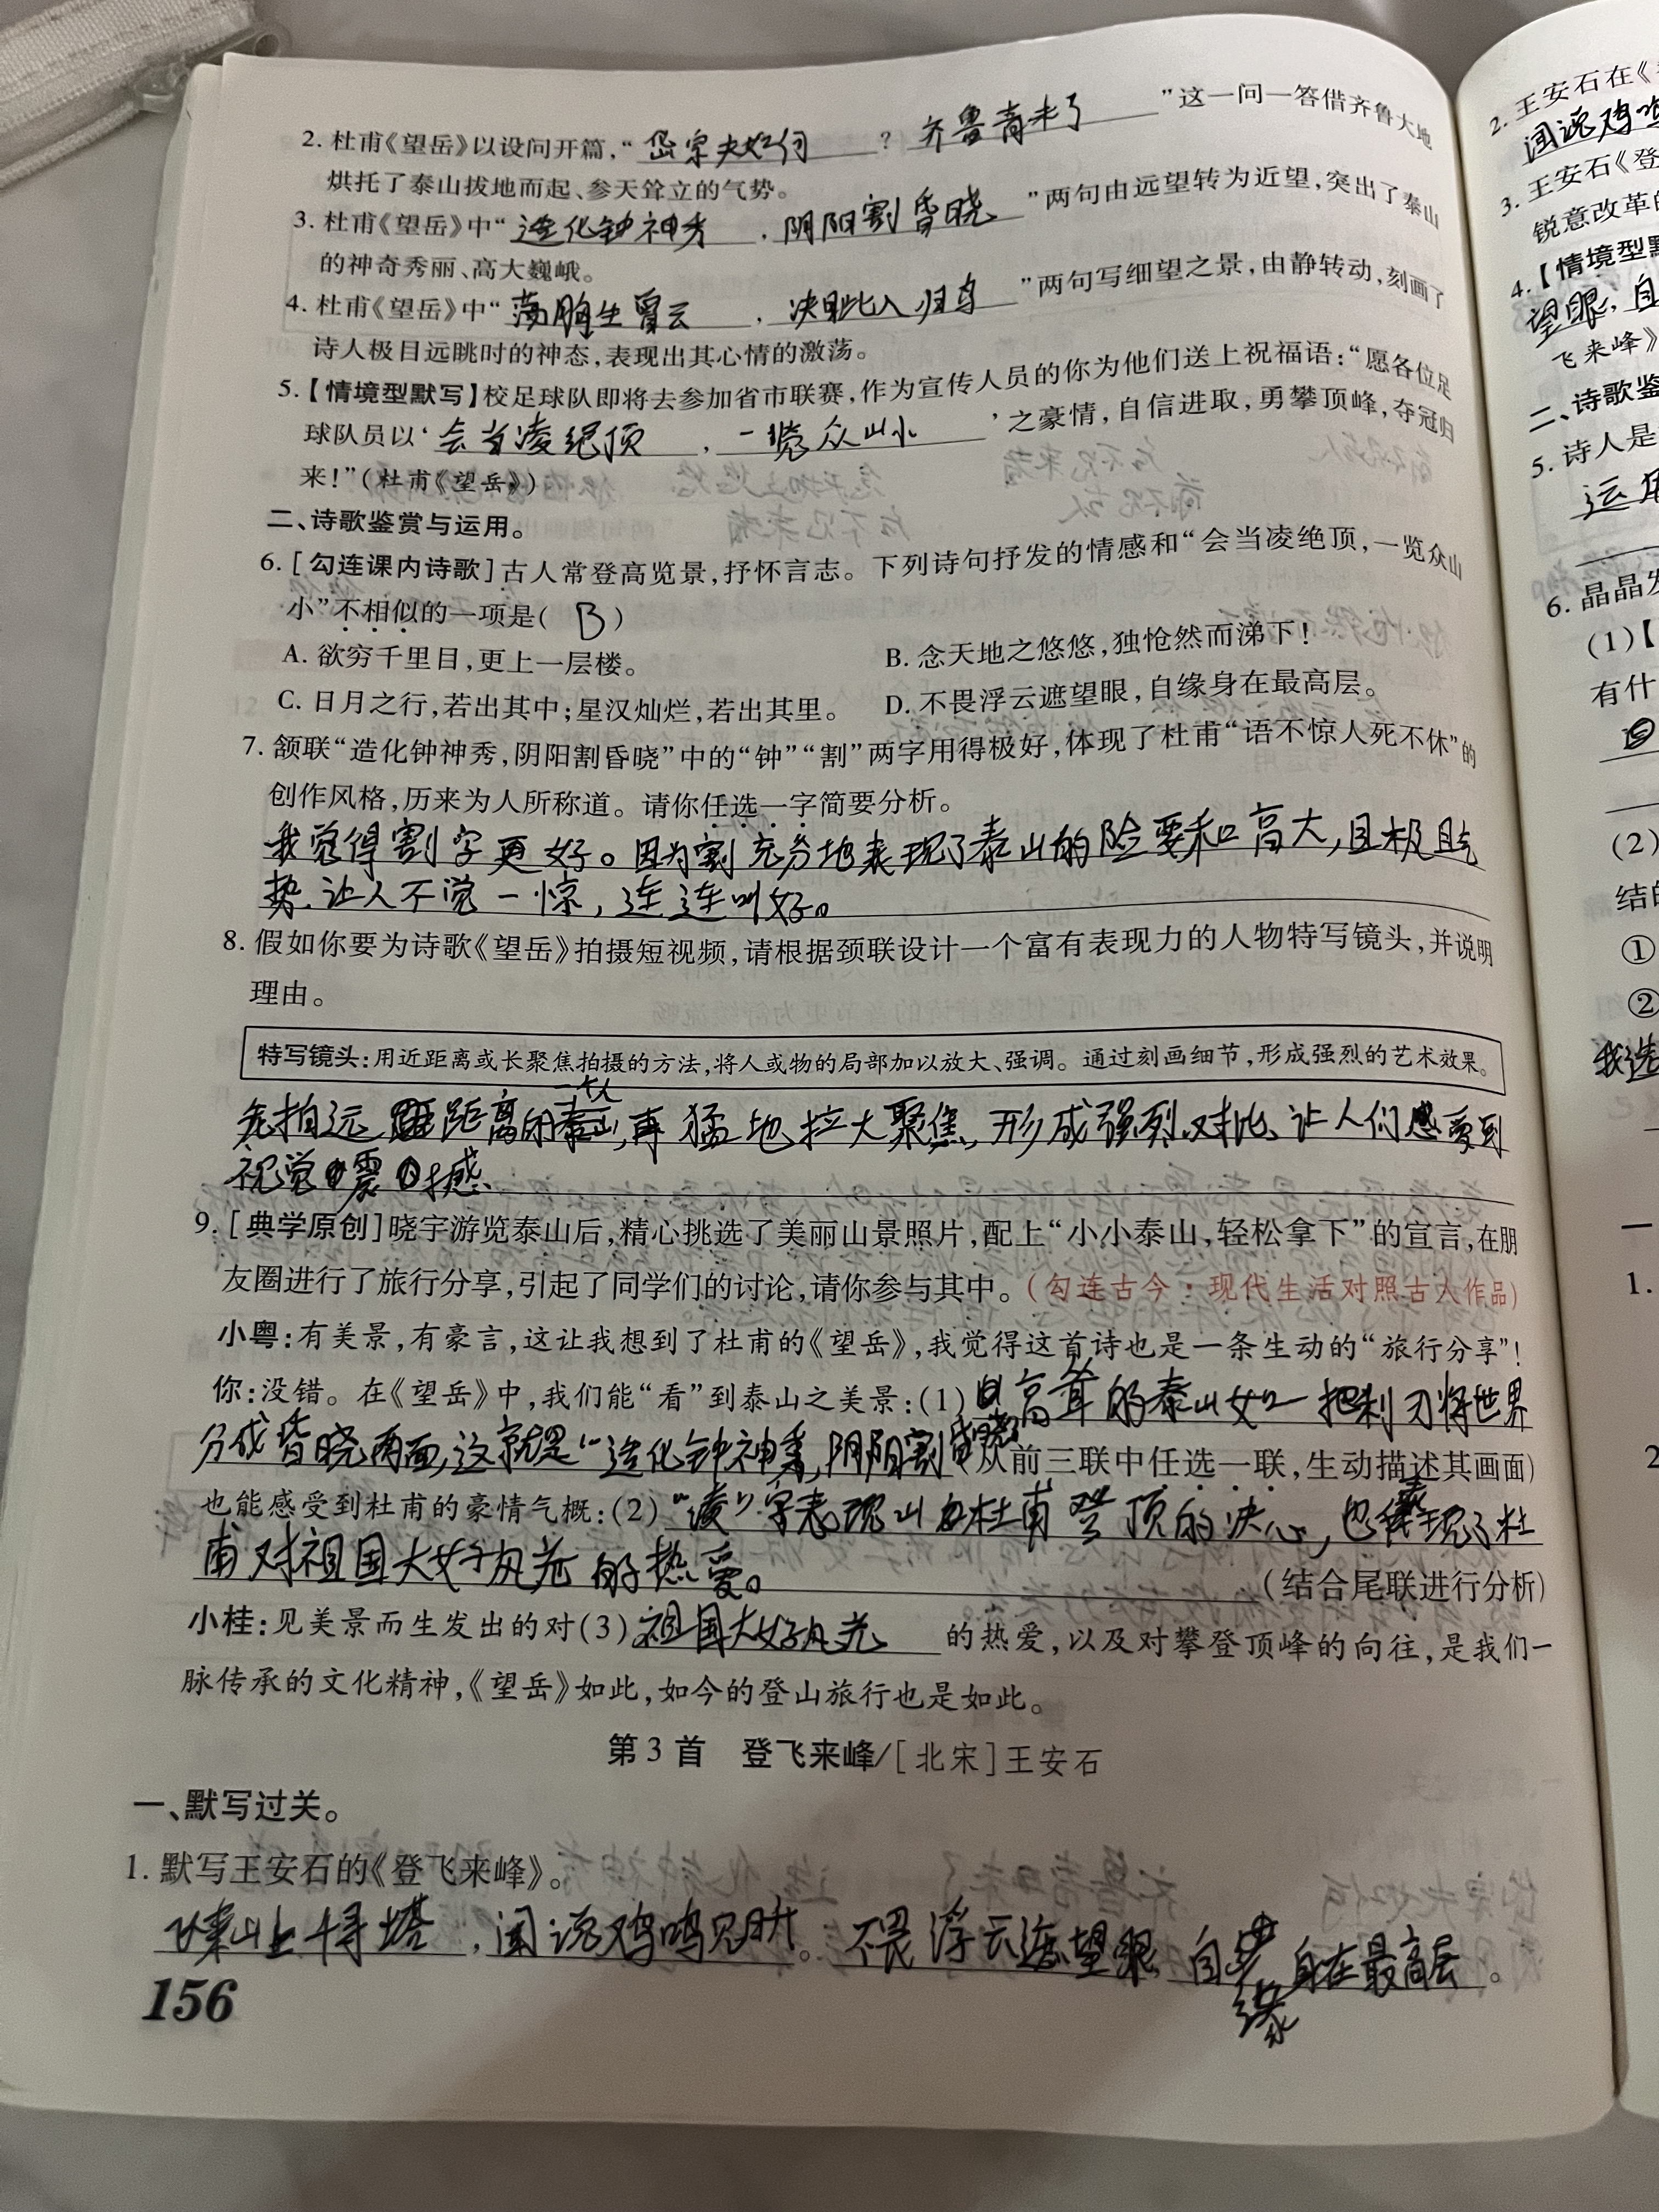 2. 杜甫《望岳》以设问开篇,“岱宗夫如何?齐鲁青未了”这一问一答借齐鲁大地
烘托了泰山拔地而起、参天耸立的气势。
3. 杜甫《望岳》中“造化钟神秀,阴阳割昏晓”两句由远望转为近望,突出了泰山
的神奇秀丽、高大巍峨。
4. 杜甫《望岳》中“荡胸生曾云,决眦入归鸟”两句写细望之景,由静转动,刻画了
诗人极目远眺时的神态,表现出其心情的激荡。
5.【情境型默写】校足球队即将去参加省市联赛,作为宣传人员的你为他们送上祝福语:“愿各位足
球队员以‘会当凌绝顶,一览众山小’之豪情,自信进取,勇攀顶峰,夺冠归
来!”(杜甫《望岳》)
二、诗歌鉴赏与运用。
6.[勾连课内诗歌]古人常登高览景,抒怀言志。下列诗句抒发的情感和“会当凌绝顶,一览众山
小”不相似的一项是( B )
A. 欲穷千里目,更上一层楼。 B. 念天地之悠悠,独怆然而涕下!
C. 日月之行,若出其中;星汉灿烂,若出其里。 D. 不畏浮云遮望眼,自缘身在最高层。
7. 颔联“造化钟神秀,阴阳割昏晓”中的“钟”“割”两字用得极好,体现了杜甫“语不惊人死不休”的
创作风格,历来为人所称道。请你任选一字简要分析。
我觉得割字更好。因为割充分地表现了泰山的险要和高大,且极具气
势,让人不觉一惊,连连叫好。
8. 假如你要为诗歌《望岳》拍摄短视频,请根据颈联设计一个富有表现力的人物特写镜头,并说明
理由。
特写镜头:用近距离或长聚焦拍摄的方法,将人或物的局部加以放大、强调。通过刻画细节,形成强烈的艺术效果。
先拍远距离的泰山,再猛地拉大聚焦,形成强烈对比,让人们感受到
视觉震撼。
9.[典学原创]晓宇游览泰山后,精心挑选了美丽山景照片,配上“小小泰山,轻松拿下”的宣言,在朋
友圈进行了旅行分享,引起了同学们的讨论,请你参与其中。(勾连古今:现代生活对照古人作品)
小粤:有美景,有豪言,这让我想到了杜甫的《望岳》,我觉得这首诗也是一条生动的“旅行分享”!
你:没错。在《望岳》中,我们能“看”到泰山之美景:(1)高耸的泰山如一把利刃将世界
分成昏晓两面,这就是“造化钟神秀,阴阳割昏晓(从前三联中任选一联,生动描述其画面)
也能感受到杜甫的豪情气概:(2)“凌”字表现出杜甫登顶的决心,也表现了杜
甫对祖国大好风光的热爱。(结合尾联进行分析)
小桂:见美景而生发出的对(3)祖国大好风光的热爱,以及对攀登顶峰的向往,是我们一
脉传承的文化精神,《望岳》如此,如今的登山旅行也是如此。
第 3 首 登飞来峰/[北宋]王安石
一、默写过关。
1. 默写王安石的《登飞来峰》。
飞来山上千寻塔,闻说鸡鸣见日升。不畏浮云遮望眼,自缘身在最高层。
156
2. 王安石在《
闻说鸡鸣
3. 王安石《登
锐意改革的
4.【情境型默
望眼,自
飞来峰》
二、诗歌鉴
5. 诗人是
运用
6. 晶晶发
(1)【
有什
(2)
结的
①
②
我选
一
1.
2